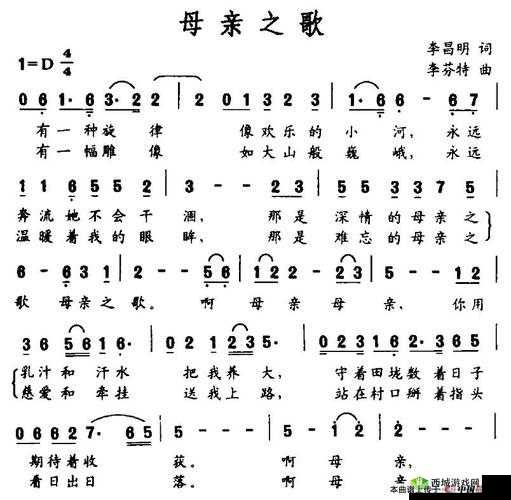 母亲之歌
李昌明 词
1=D 4/4
李芬特 曲
0 6 1· 6 3· 2 2 | 2 0 1 3 2 3 | 1· 6 6 - 6 7 |
有一种旋律 像欢乐的小河，永远
有一幅雕像 如大山般巍峨，永远
1 1 6 5 5 2 | 3 - - 2 3 | 5 5 3 3 7 5 |
奔流她不会干涸，那是深情的母亲之
温暖着我的眼眸，那是难忘的母亲之
6 - 6 3 1 | 2 - 2 5 6 | 1 2 2 - 2 3 | 2 - - 1 2 |
歌 母亲之歌。啊母亲母亲，你用
3 6 5 6 1 6· | 0 2 1 2 3 5 | 0 0 2 3 1 6 2· 3 6 5 |
乳汁和汗水 把我养大，守着田垅数着日子
慈爱和牵挂 送我上路，站在村口掰着指头
0 6 6 2 2 7· 6 5 | 5 - - 5 6 | 1 2 2 - 2 3 |
期待着收获。啊母亲，
看日出日落。啊母
西城游戏网
本曲谱上传于 中国